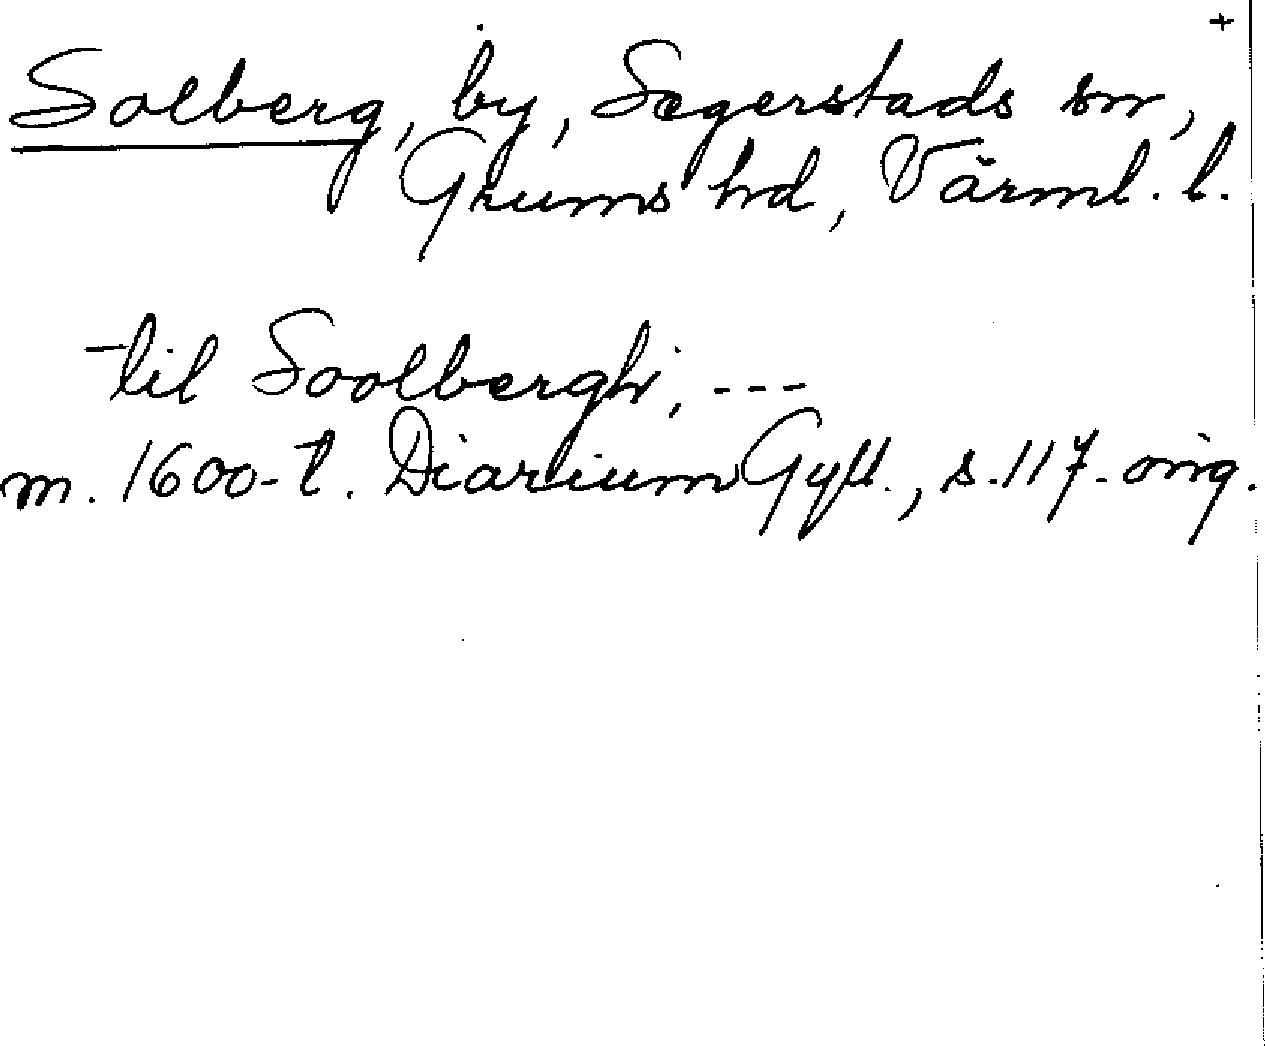 +
Solberg, by, Segerstads sn,
Grums hd, Värml. l.
til Soolbergh, ---
m. 1600-t. Diarium Gyll., s. 117. orig.